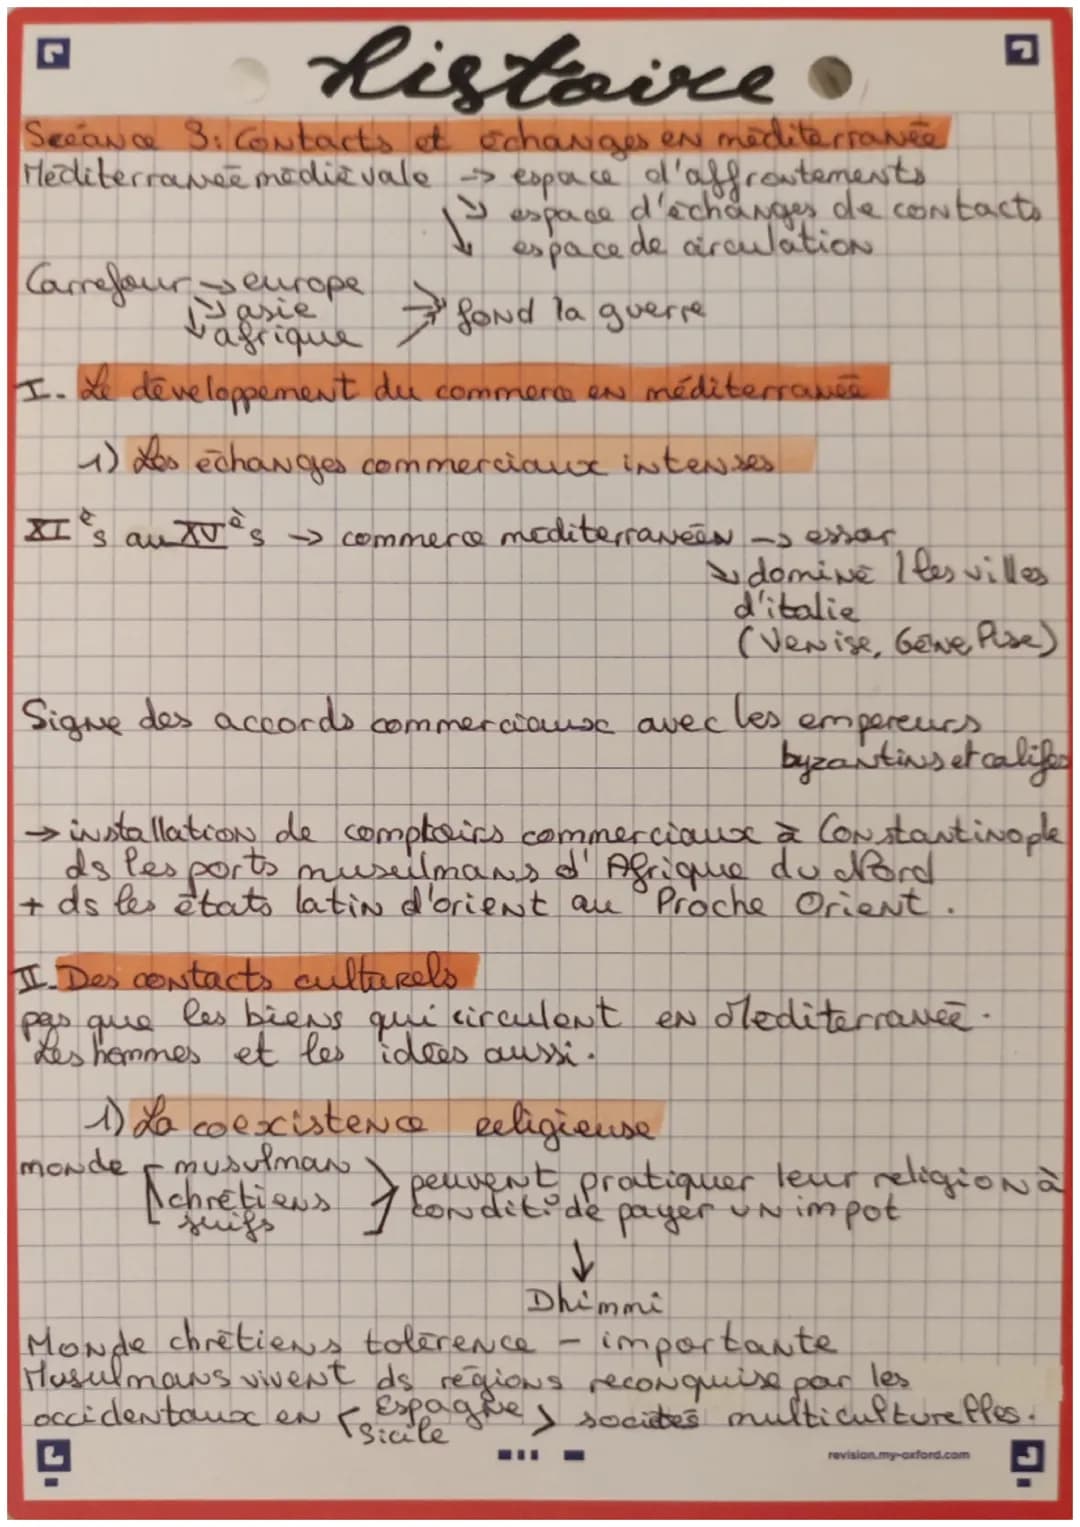 Histoire
Seéance 3: Contacts et échanges en méditerranée
Méditerranée médiévale → espace d'affrontements
↘ espace d'échanges de contacts
↓ espace de circulation
Carrefour → europe
↘ asie → fond la guerre
↓ afrique
I. Le développement du commerce en méditerranée
1) Les échanges commerciaux intenses
XIè s au XVè s → commerce méditerranéen → essor
↘ dominé / les villes
d'italie
(Venise, Gêne, Pise)
Signe des accords commerciaux avec les empereurs
byzantins et califes
→ installation de comptoirs commerciaux à Constantinople
ds les ports musulmans d'Afrique du Nord
+ ds les états latin d'orient au Proche Orient.
II. Des contacts culturels
pas que les biens qui circulent en Mediterranée.
Les hommes et les idées aussi.
1) La coexistence religieuse
monde musulman
chrétiens
juifs
peuvent pratiquer leur religion à
condit° de payer un impot
↓
Dhimmi
Monde chrétiens tolérence - importante
Musulmans vivent ds régions reconquise par les
occidentaux en Espagne
Sicile
sociétés multiculturelles.
revision.my-oxford.com